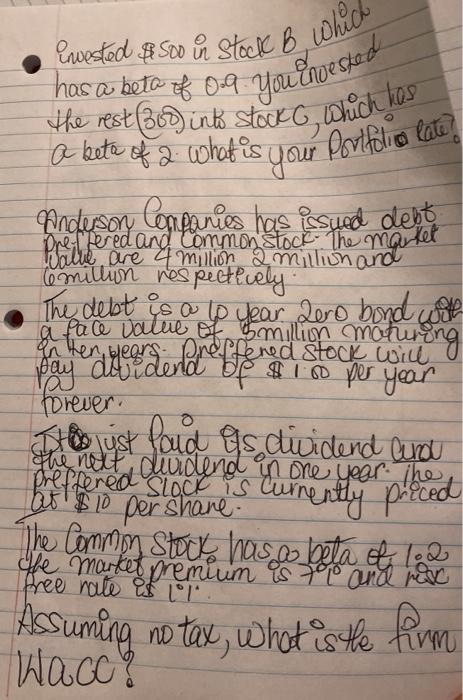 invested $500 in Stock B, which
has a beta of 0.9. You invested
the rest (300) into stock C, which has
a beta of 2. what is your Portfolio
Anderson Companies has issued debt
preffered and Common stock. The market
Value are 4 million 2 million and
6 million respectively.
The debt is a 10 year Zero bond with
a face value of 5 million maturing
in ten years. Preffered stock will
pay dividend of $1.00 per year
forever.
It just Paid its dividend and
the next dividend in one year. The
preffered Stock is currently priced
at $10 per share.
The Common Stock has a beta of 1.2
the market premium is 7% and risc
free rate is 1%.
Assuming no tax, what is the firm
Wacc?